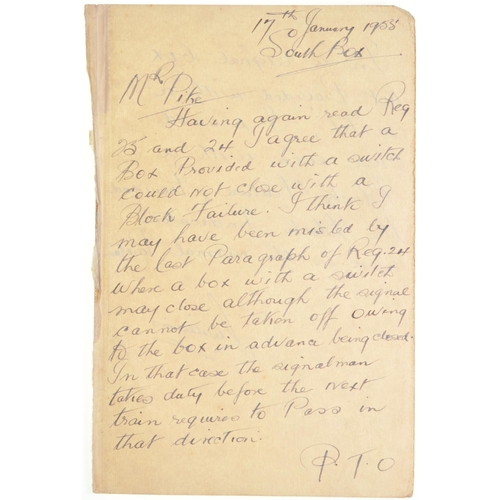 17th January 1955
South Box
Mr Pike
Having again read Reg
25 and 24 I agree that a
Box Provided with a switch
could not close with a
Block Failure. I think I
may have been misled by
the last Paragraph of Reg. 24
when a box with a switch
may close although the signal
cannot be taken off owing
to the box in advance being closed.
In that case the signalman
takes duty before the next
train requires to Pass in
that direction.
P. T. O